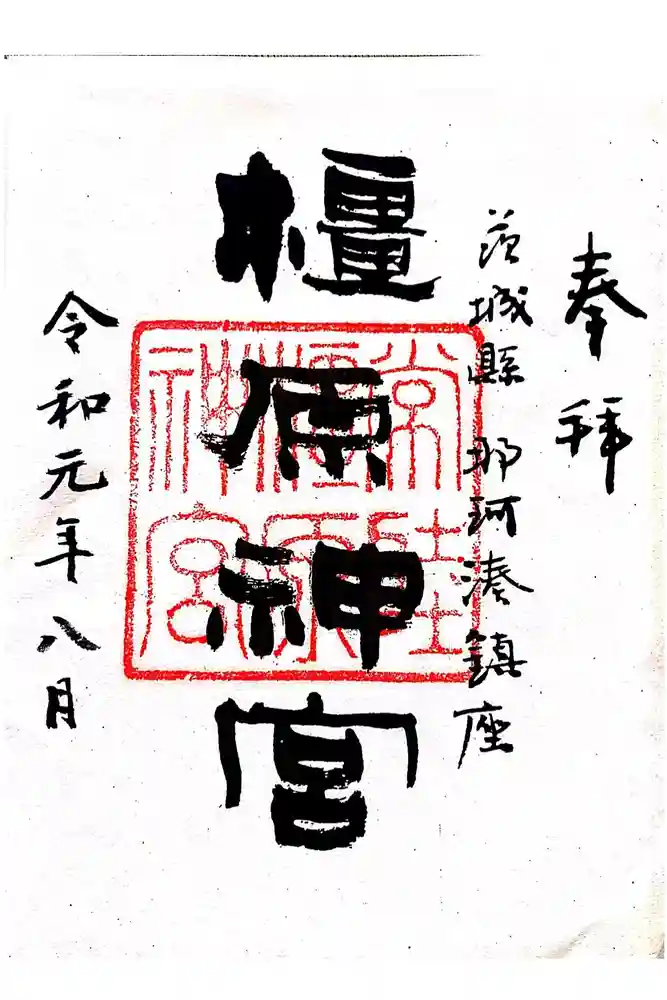 奉拝
茨城縣 那珂湊鎮座
橿原神宮
常陸
橿原
神宮
令和元年八月